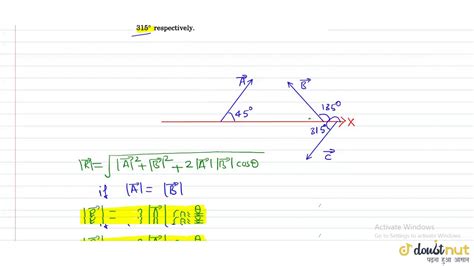 315° respectively.
A⃗ B⃗
45° 135°
315° X
C⃗
|R⃗| = √|A⃗|² + |B⃗|² + 2|A⃗||B⃗| cosθ
if |A⃗| = |B⃗|
|R⃗| = 2|A⃗| cos θ
Activate Windows
Go to Settings to activate Windows.
doubtnut
पढ़ना हुआ आसान